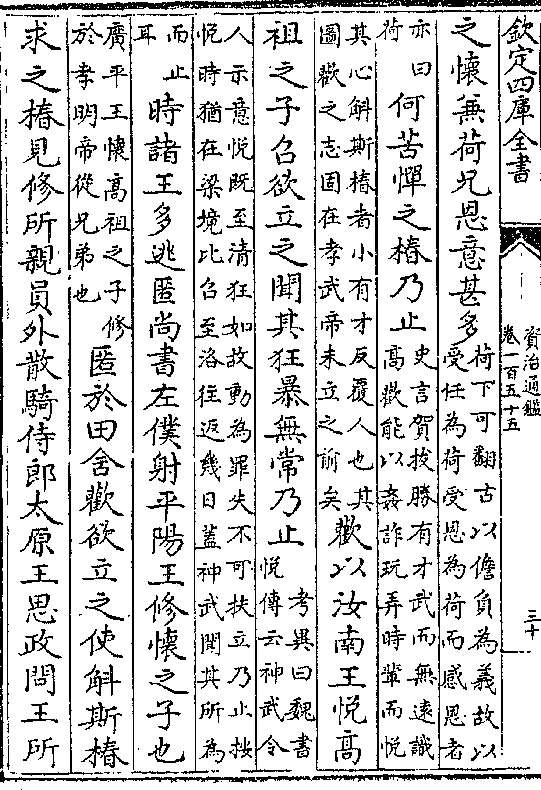 欽定四庫全書
資治通鑑
卷一百五十五
三十
之懷無荷兄恩意甚多
荷下可翻古以儋負為義故以
受任為荷受恩為荷而感恩者
亦曰
荷
何苦憚之椿乃止
史言賀拔勝有才武而無遠識
高歡能以姦詐玩弄時輩而悦
其心斛斯椿者小有才反覆人也其
圖歡之志固在孝武帝未立之前矣
歡以汝南王悦高
祖之子召欲立之聞其狂暴無常乃止
考異曰魏書
悦傳云神武令
人示意悦既至清狂如故動為罪失不可扶立乃止按
悦時猶在梁境比召至洛往返幾日蓋神武聞其所為
而止
耳
時諸王多逃匿尚書左僕射平陽王修懷之子也
廣平王懷高祖之子修
於孝明帝從兄弟也
匿於田舍歡欲立之使斛斯椿
求之椿見修所親員外散騎侍郎太原王思政問王所